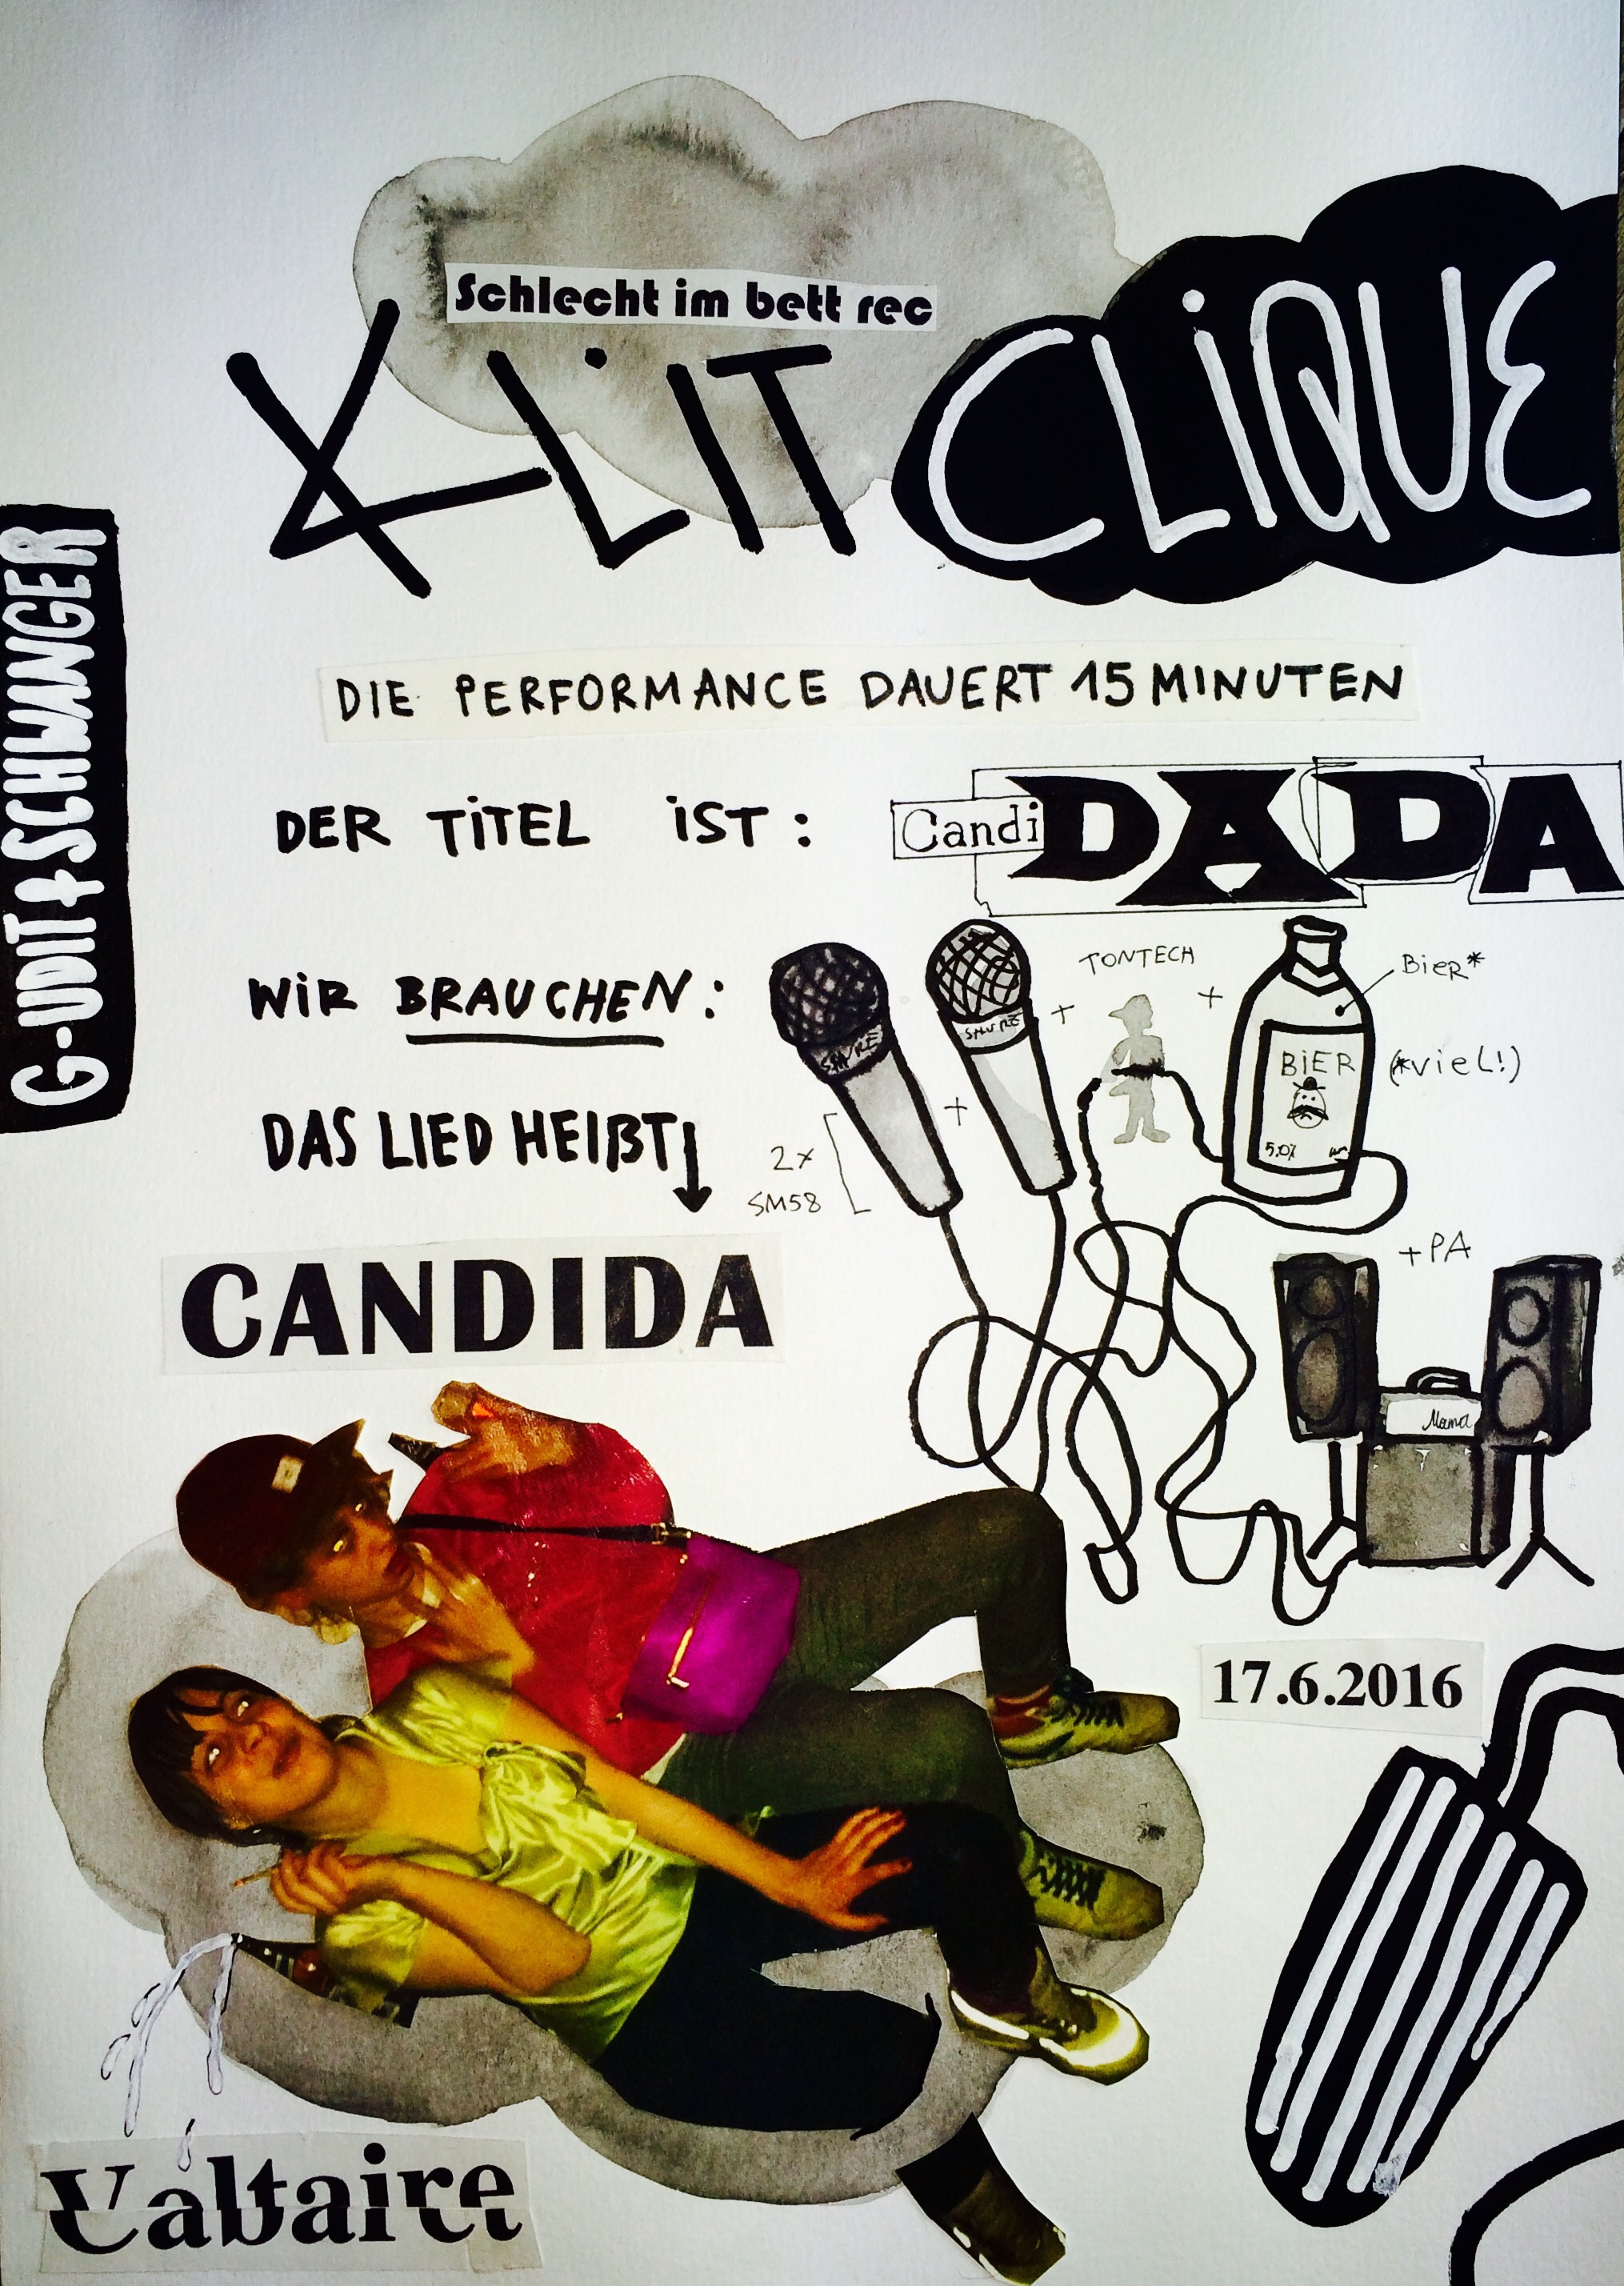 Schlecht im bett rec
KLiT CLiQUE
G-UDIT + SCHWANGER
DIE PERFORMANCE DAUERT 15 MINUTEN
DER TiTEL iST: CandiDADA
WiR BRAUCHEN:
SHURE
SHURE
+
+
TONTECH
+
BiER*
BiER
(*vieL!)
5,0%
2x
SM58
+PA
Mama
DAS LIED HEIßT
CANDIDA
17.6.2016